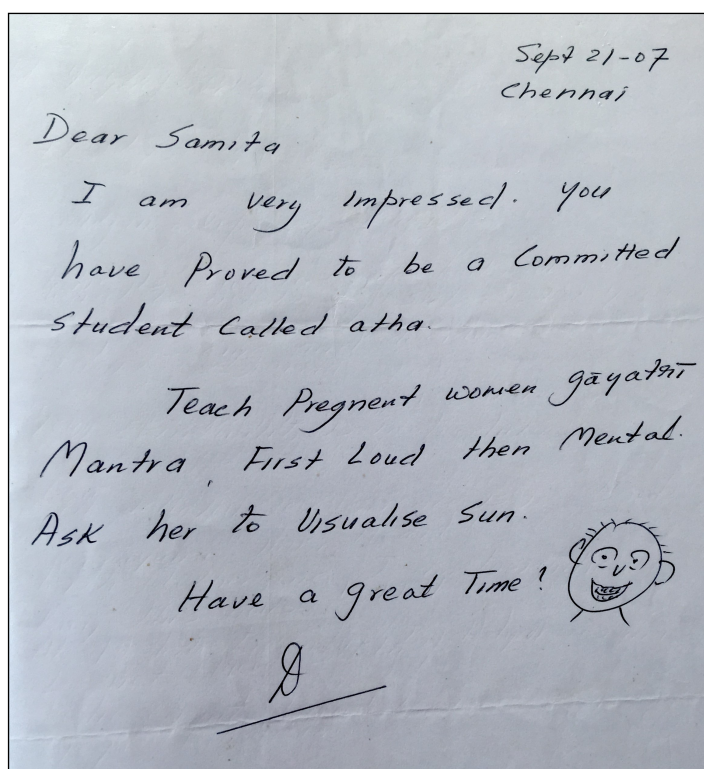 Sept 21-07
Chennai
Dear Samita
I am very impressed. you
have Proved to be a Committed
student Called atha.
Teach Pregnent women gāyatrī
Mantra, First Loud then Mental.
Ask her to Visualise Sun.
Have a great Time!